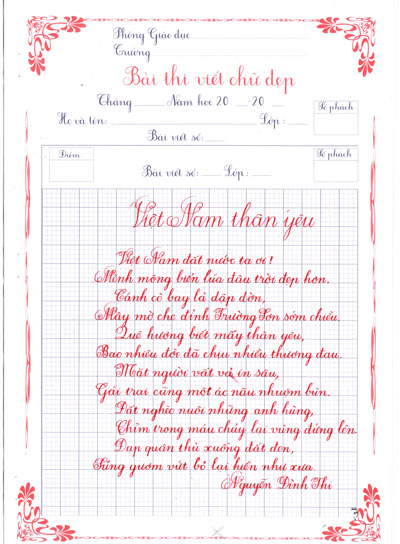 Phòng Giáo dục
Trường
Bài thi viết chữ đẹp
Tháng Năm học 20 20
Số phách
Họ và tên: Lớp:
Bài viết số:
Điểm
Số phách
Bài viết số: Lớp:
Việt Nam thân yêu
Việt Nam đất nước ta ơi!
Mênh mông biển lúa đâu trời đẹp hơn.
Cánh cò bay lả dập dờn,
Mây mờ che đỉnh Trường Sơn sớm chiều.
Quê hương biết mấy thân yêu,
Bao nhiêu đời đã chịu nhiều thương đau.
Mặt người vất vả in sâu,
Gái trai cũng một áo nâu nhuộm bùn.
Đất nghèo nuôi những anh hùng,
Chìm trong máu chảy lại vùng đứng lên.
Đạp quân thù xuống đất đen,
Súng gươm vứt bỏ lại hiền như xưa.
Nguyễn Đình Thi